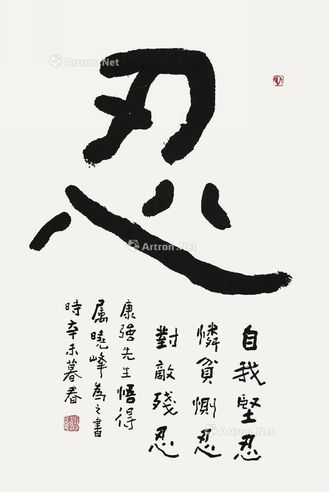 忍
自我堅忍
憐貧惻忍
對敵殘忍
康強先生悟得
屬曉峰為之書
時辛未暮春
Artron.Net
Artron.Net
Artron.Net